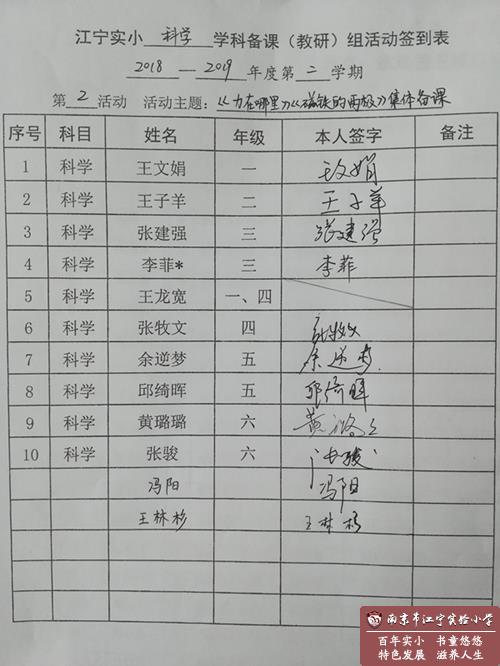 江宁实小 科学 学科备课（教研）组活动签到表
2018 — 2019 年度第 二 学期
第 2 活动 活动主题：《力在哪里》《磁铁的两极》集体备课
序号 科目 姓名 年级 本人签字 备注
1 科学 王文娟 一 王文娟
2 科学 王子羊 二 王子羊
3 科学 张建强 三 张建强
4 科学 李菲* 三 李菲
5 科学 王龙宽 一、四
6 科学 张牧文 四 张牧文
7 科学 余逆梦 五 余逆梦
8 科学 邱绮晖 五 邱绮晖
9 科学 黄璐璐 六 黄璐璐
10 科学 张骏 六 张骏
冯阳 冯阳
王林杉 王林杉
南京市江宁实验小学
百年实小 书童悠悠
特色发展 滋养人生